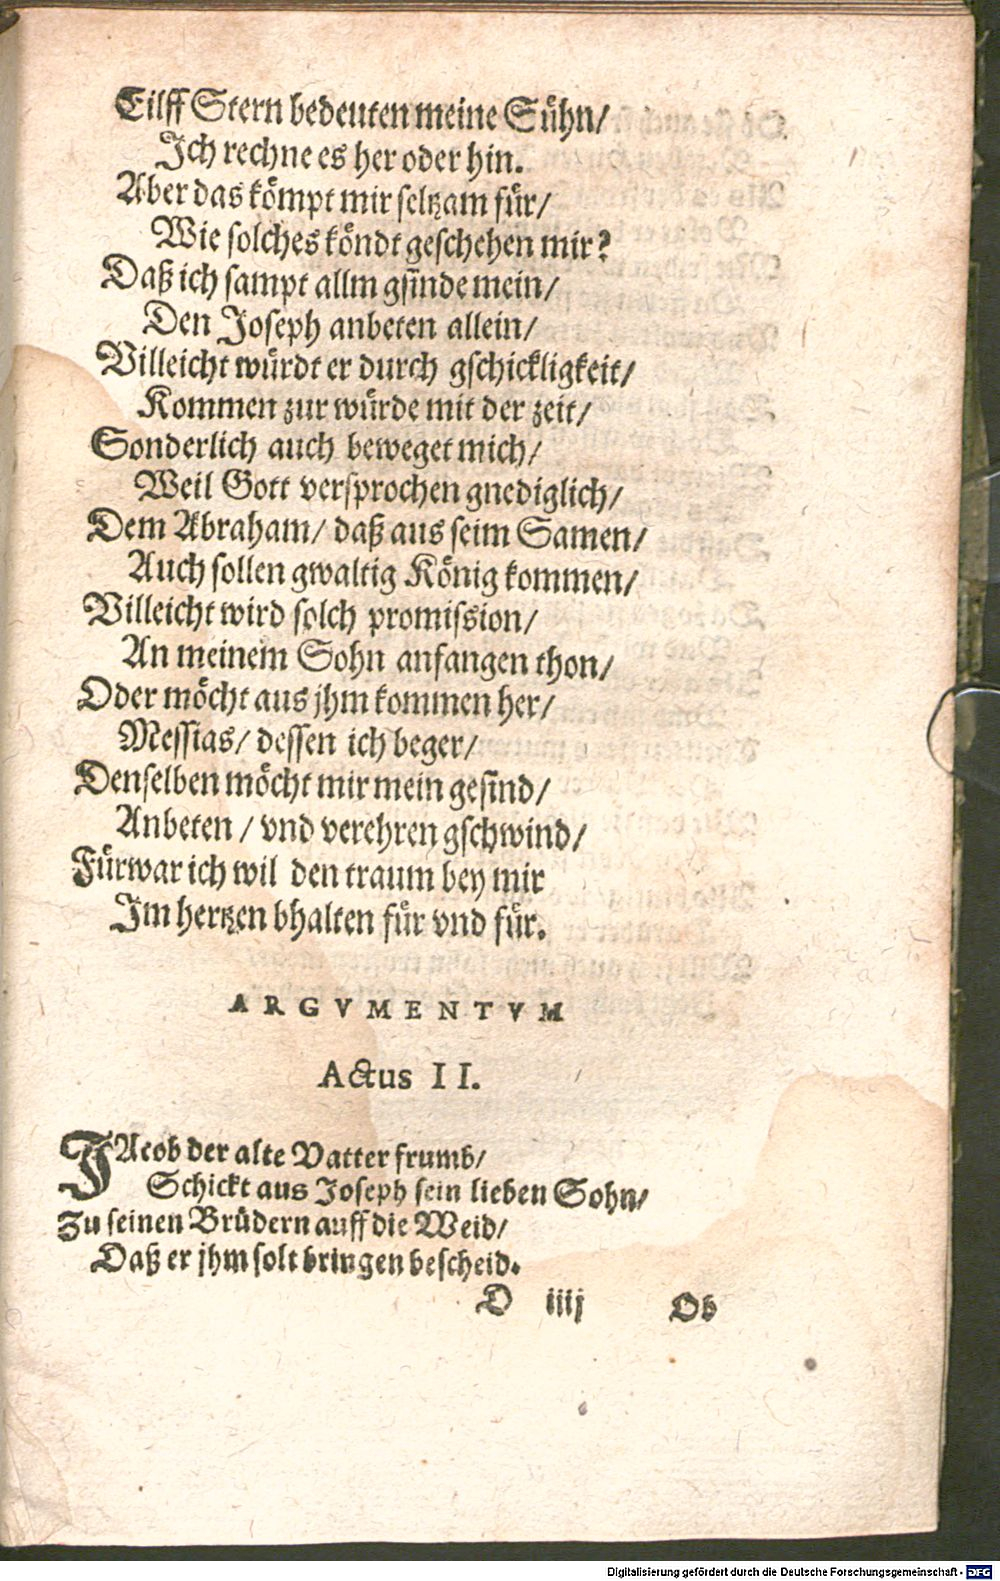 Eilff Stern bedeuten meine Sühn/
Ich rechne es her oder hin.
Aber das kömpt mir seltzam für/
Wie solches köndt geschehen mir?
Daß ich sampt allm gsinde mein/
Den Joseph anbeten allein/
Villeicht würdt er durch gschickligkeit/
Kommen zur würde mit der zeit/
Sonderlich auch beweget mich/
Weil Gott versprochen gnediglich/
Dem Abraham/ daß aus seim Samen/
Auch sollen gwaltig König kommen/
Villeicht wird solch promission/
An meinem Sohn anfangen thon/
Oder möcht aus jhm kommen her/
Messias/ dessen ich beger/
Denselben möcht mir mein gesind/
Anbeten / vnd verehren gschwind/
Fürwar ich wil den traum bey mir
Im hertzen bhalten für vnd für.
ARGVMENTVM
Actus II.
JAcob der alte Vatter frumb/
Schickt aus Joseph sein lieben Sohn/
Zu seinen Brüdern auff die Weid/
Daß er jhm solt bringen bescheid.
D iiij Ob
Digitalisierung gefördert durch die Deutsche Forschungsgemeinschaft - DFG